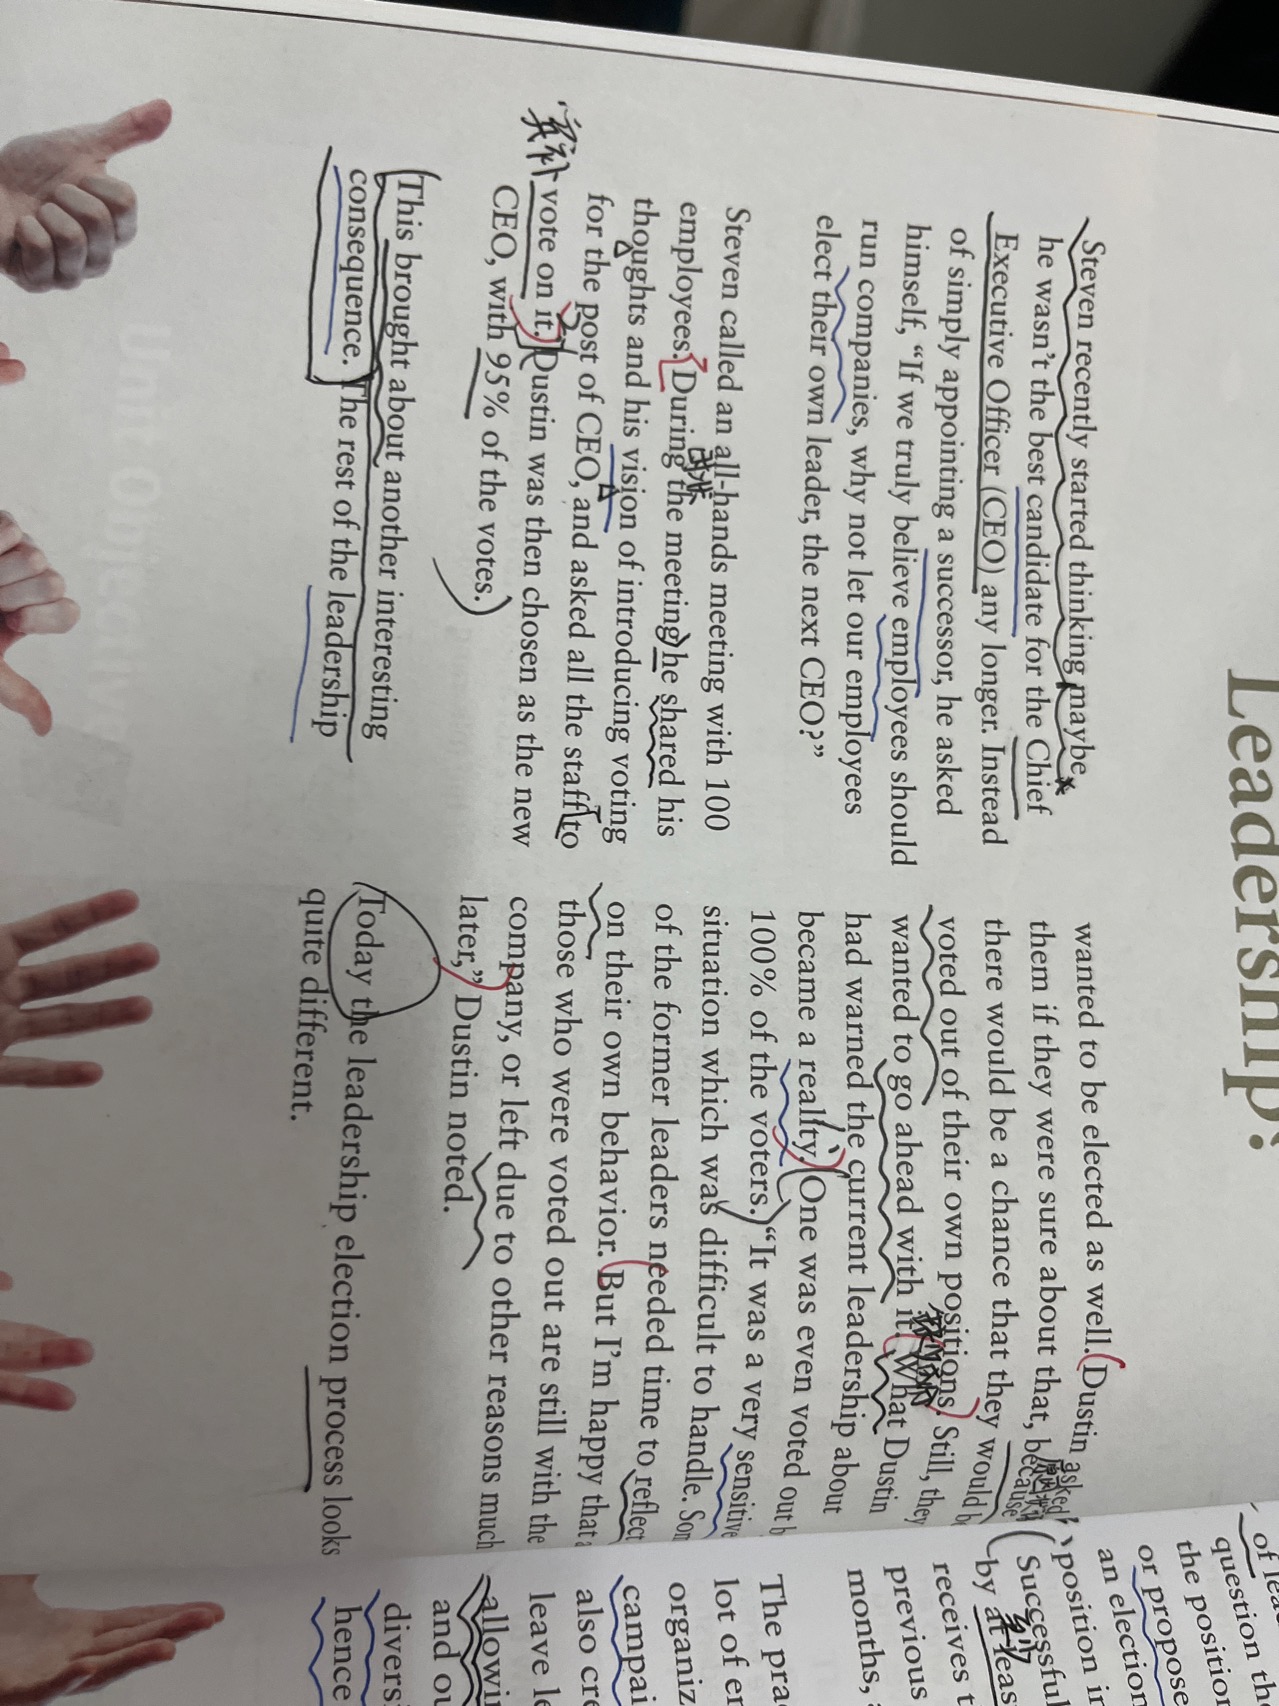 Leadership?
Steven recently started thinking maybe
he wasn't the best candidate for the Chief
Executive Officer (CEO) any longer. Instead
of simply appointing a successor, he asked
himself, "If we truly believe employees should
run companies, why not let our employees
elect their own leader, the next CEO?"
Steven called an all-hands meeting with 100
employees. During the meeting he shared his
thoughts and his vision of introducing voting
for the post of CEO, and asked all the staff to
vote on it. Dustin was then chosen as the new
CEO, with 95% of the votes.
This brought about another interesting
consequence. The rest of the leadership
wanted to be elected as well. Dustin asked
them if they were sure about that, because
there would be a chance that they would b
voted out of their own positions. Still, they
wanted to go ahead with it. What Dustin
had warned the current leadership about
became a reality. One was even voted out b
100% of the voters. "It was a very sensitive
situation which was difficult to handle. Som
of the former leaders needed time to reflect
on their own behavior. But I'm happy that a
those who were voted out are still with the
company, or left due to other reasons much
later," Dustin noted.
Today the leadership election process looks
quite different.
of lea
question th
the position
or propose
an election
position in
Successful
by at leas
receives t
previous
months,
The pra
lot of er
organiz
campai
also cre
leave le
allowin
and ou
divers
hence